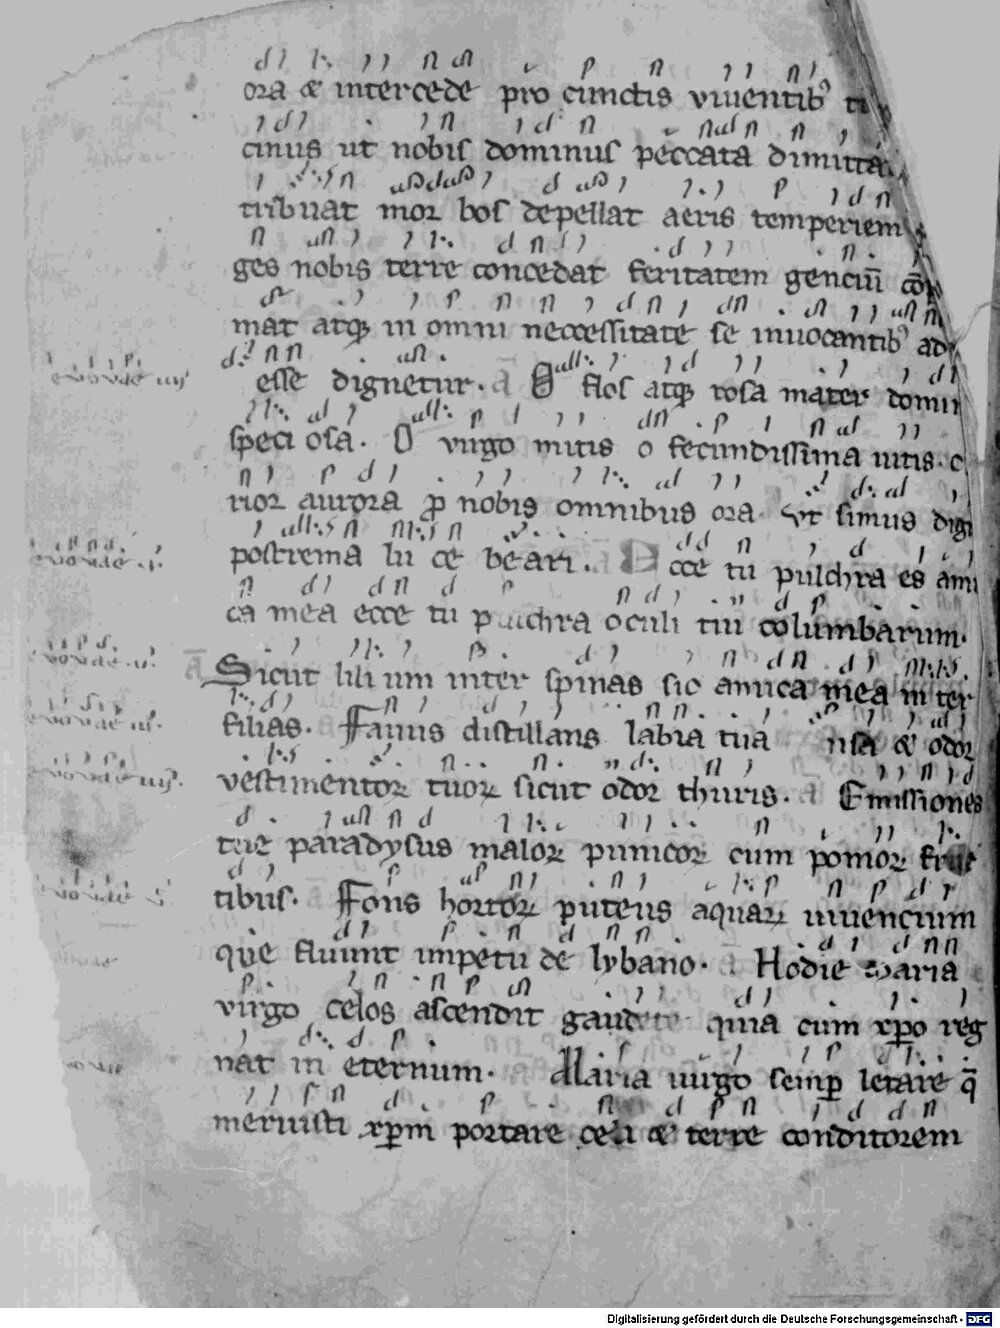 ora & intercede pro cunctis viventibꝰ
cinus ut nobis dominus peccata dimitta
tribuat morboſ depellat aeris temperiem
ges nobis terre concedat feritatem genciū
mat atqꝫ in omni neccessitate se invocantibꝰ ad
esse dignetur. O flos atqꝫ rosa mater domini
speciosa. O virgo mitis o fecundissima vitis. c
rior aurora ꝓ nobis omnibus ora ut simus digni
postrema luce beari. Ecce tu pulchra es ami
ca mea ecce tu pulchra oculi tui columbarum.
Sicut lilium inter spinas sic amica mea inter
filias. Favus distillans labia tua & odor
vestimentoꝝ tuoꝝ sicut odor thuris. Emissiones
tue paradysus maloꝝ punicoꝝ cum pomoꝝ fruc
tibus. Fons hortoꝝ puteus aquaꝝ vivencium
que fluunt impetu de lybano. Hodie maria
virgo celos ascendit gaudete quia cum xp̄o reg
nat in eternum. Maria virgo semꝑ letare q̄
meruisti xp̄m portare celi & terre conditorem
Digitalisierung gefördert durch die Deutsche Forschungsgemeinschaft - DFG